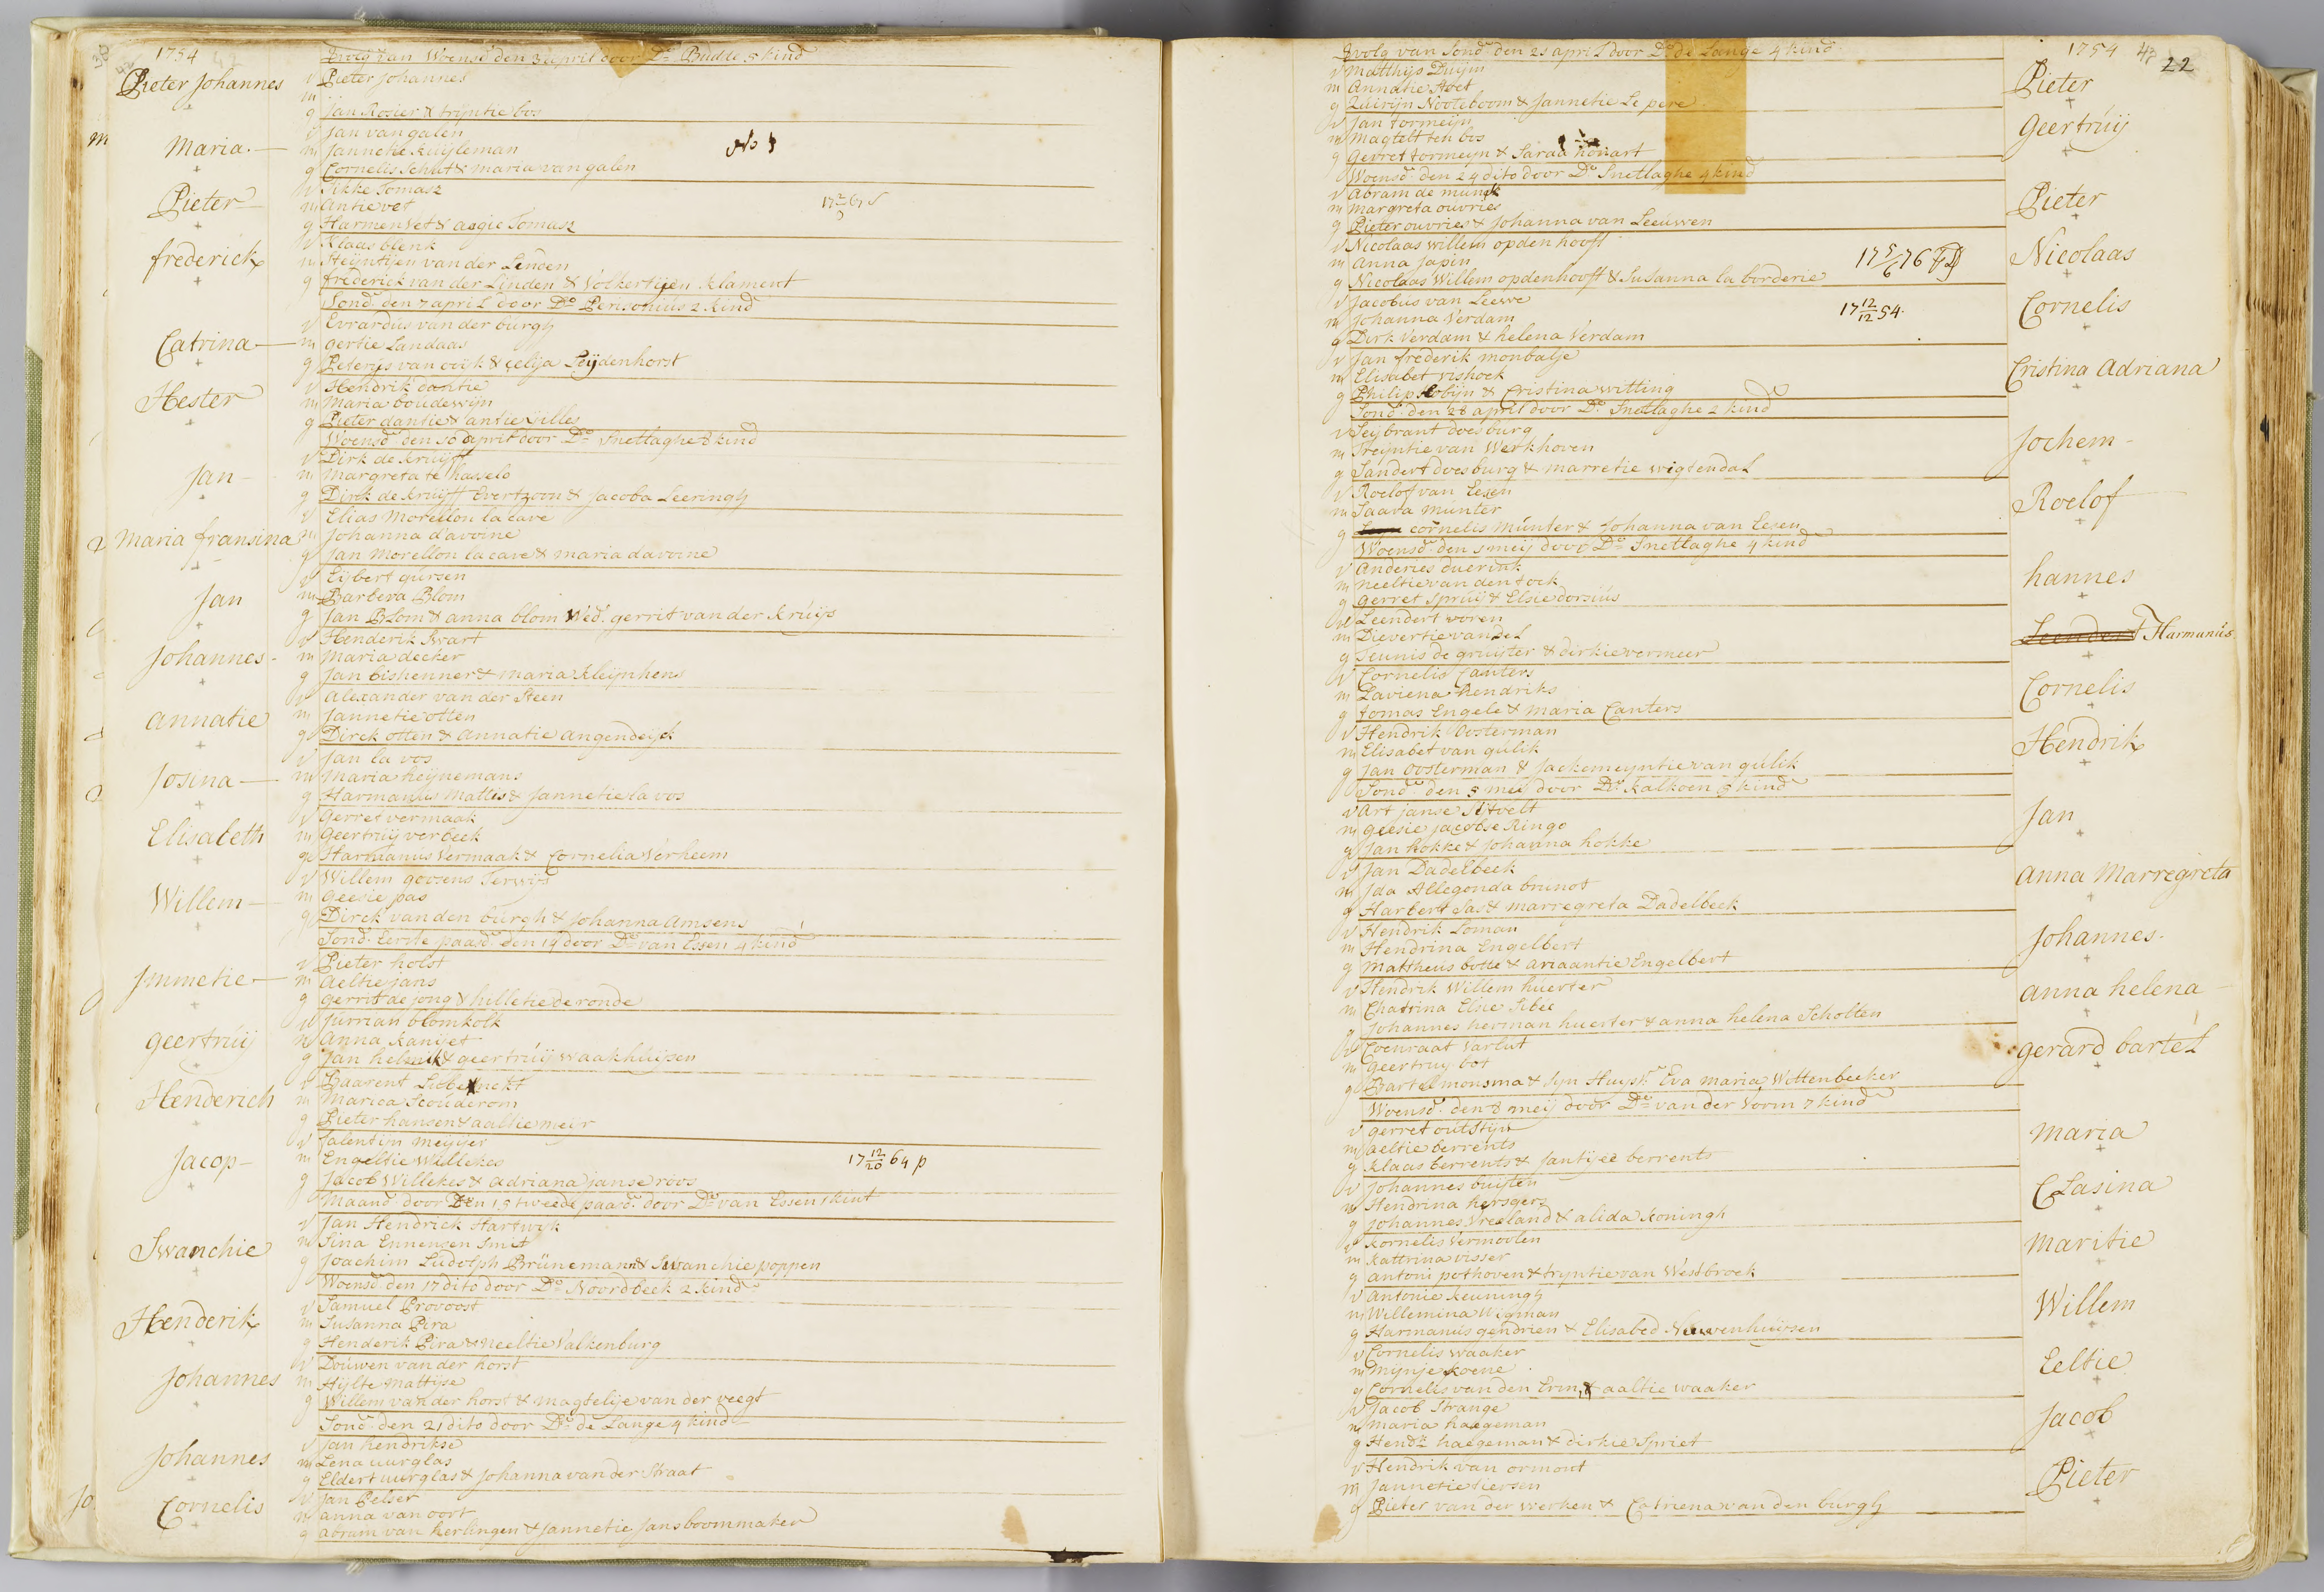 1754
vvolg van Woensd den 3 april door Ds Budde 5 kind
Pieter Johannes
v Pieter Johannes
m
g Jan Rosier & trijntie bos
Maria
v Jan van galen
m Janneke Kuijleman
g Cornelis Schut & maria van galen
Pieter
v Sikke Tomasz
m antie vet
g Harmen Vet & aagie Tomasz
frederick
v Klaas blenk
m Steijntijen van der Linden
g frederick van der Linden & Volkertijen Klament
Sond. den 7 april door Do Perisonius 2 kind
Catrina
v Evrardus van der burgh
m gertie Landaas
g Peterus van ooijk & celija Leijdenhorst
Hester
v Hendrik dantie
m Maria boudewijn
g Pieter dantie & antie Gilles
Woensd den 10 april door Do Snetlaghe 8 kind
Jan
v Dirk de kruijff
m Margreta te hasselo
g Dirck de kruijff Evertzoon & Jacoba Leeringh
Maria fransina
v Elias Morellon la cave
m Johanna d'avoine
g Jan Morellon la cave & maria davoine
Jan
v Eijbert gursen
m Barbera Blom
g Jan Blom & anna blom Wed. gerrit van der kruijs
Johannes
v Henderik Swart
m maria decker
g Jan bishenner & maria kleijnhens
annatie
v alexander van der Steen
m Jannetie otten
g Dirck otten & annatie angendeijck
Josina
v Jan la vos
m maria heijnemans
g Harmanus mattis & Jannetie la vos
Elisabeth
v gerret vermaak
m geertruij verbeek
g Harmanus Vermaak & Cornelia Verheem
Willem
v Willem goosens Terwijs
m geesie pas
g Dirck van den burgh & Johanna Amsens
Sond. Eerste paasd. den 14 door Do van Essen 4 kind
Jmmetie
v Pieter holst
m aeltie jans
g gerrit de jong & hilletie de ronde
geertruij
v Jurrian blomkolk
m anna kanijet
g Jan helmik & geertruij waakhuijsen
Henderich
v Baarent Liebe knekt
m Marica Scouderom
g Pieter hansen & aaltie meijr
Jacop
v falentijn meijjer
m Engeltie Willekes
17 12/20 64 p
g Jacob Willekes & adriana janse roos
Maand door den 15 tweede paasd. door Do van Essen 1 kint
Swanchie
v Jan Hendrick Hartwyk
m Tina Ennensen Smit
g Joachim Ludolph Brünemann & Swanchie poppen
Woensd den 17 dito door Do Noordbeek 2 kind
Henderik
v Samuel Provoost
m Susanna Pira
g Henderik Pira & neeltie Valkenburg
Johannes
v Douwen van der horst
m Hijlte mattijse
g Willem van der horst & magtelije van der veegt
Sond den 21 dito door Do de Lange 4 kind
Johannes
v Jan hendrikse
m Lena uurglas
g Eldert uurglas & Johanna van der Straat
Cornelis
v Jan Pelser
m anna van oort
g abram van herlingen & Jannetie Jans boommaker
vvolg van Sond den 21 april door Do de Lange 4 kind
1754
22
v matthijs Duijm
Pieter
m annatie
g Quirijn Nooteboom & Jannetie Le pere
v Jan tormeijn
geertruij
m magtelt ten bos
g gerret tormeijn & Saraa honart
Woensd den 24 dito door Do Snetlaghe 4 kind
v abram de munck
Pieter
m margreta ouvries
g Pieter ouvries & Johanna van Leeuwen
v Nicolaas willem opden hooft
Nicolaas
m anna japin
17 5/6 76
g Nicolaas Willem opdenhooft & Susanna la borderie
v Jacobus van Leewe
Cornelis
m Johanna Verdam
17 12/12 54
g Dirk Verdam & helena Verdam
v Jan frederik monbalje
Cristina Adriana
m Elisabet vishoek
g Philip Robijn & Cristina witting
Sond den 28 april door Do Snetlaghe 2 kind
v Seijbrant doesburg
Jochem
m Treijntie van Werkhoven
g Sandert doesburg & marretie wigtendal
v Roelof van Eesen
Roelof
m Saara munter
g cornelis munter & Johanna van Eesen
Woensd den 1 meij door Do Snetlaghe 4 kind
v anderies duerink
hannes
m neeltie van den tock
g gerret Spruij & Elsie dorsius
v Leendert voren
Leendert Harmanus
m Dievertie van del
g Teunis de gruijter & dirkie vermeer
v Cornelis Canters
Cornelis
m Laviena hendriks
g tomas Engele & maria Canters
v Hendrik Oosterman
Hendrik
m Elisabet van gulik
g Jan Oosterman & Jackemeyntie van gulik
Sond den 5 meij door Do Kalkoen 5 kind
v Art janse Sijtvelt
Jan
m geesie jacobse Ringo
g Jan hokke & Johanna hokke
v Jan Dadelbeek
anna Marregreta
m Jda Allegonda brunot
g Harbert Sas & marregreta Dadelbeek
v Hendrik Loman
Johannes
m Hendrina Engelbert
g Mattheus botte & ariaantie Engelbert
v Hendrik Willem huerter
anna helena
m Chatrina Elsie Sibee
g Johannes herman huerter & anna helena Scholten
v Coenraat Varlut
gerard bartel
m geertruy bot
g Bartel monsma & sijn Huysv. Eva maria Wittenbecker
Woensd den 8 meij door Do van der Vorm 7 kind
v gerret outstijn
maria
m aeltie berrents
g Klaas berrents & Jantijee berrents
v Johannes buijten
Clasina
m Hendrina hersgers
g Johannes Vreeland & alida koningh
v Kornelis Vermoolen
maritie
m Kattrina visser
g antoni pothoven & tryntie van Westbroek
v antonie keuningh
Willem
m Willemina Wigman
g Harmanus gendrien & Elisabed Nieuwenhuijsen
v Cornelis waaker
Eeltie
m Mynje koene
g Cornelis van den Erm & aaltie waaker
v Jacob Strange
Jacob
m maria haegeman
g Hendk haegeman & dirkie Spriet
v Hendrik van ormont
Pieter
m Jannetie tiersen
g Pieter van der werken & Catriena van den burgh